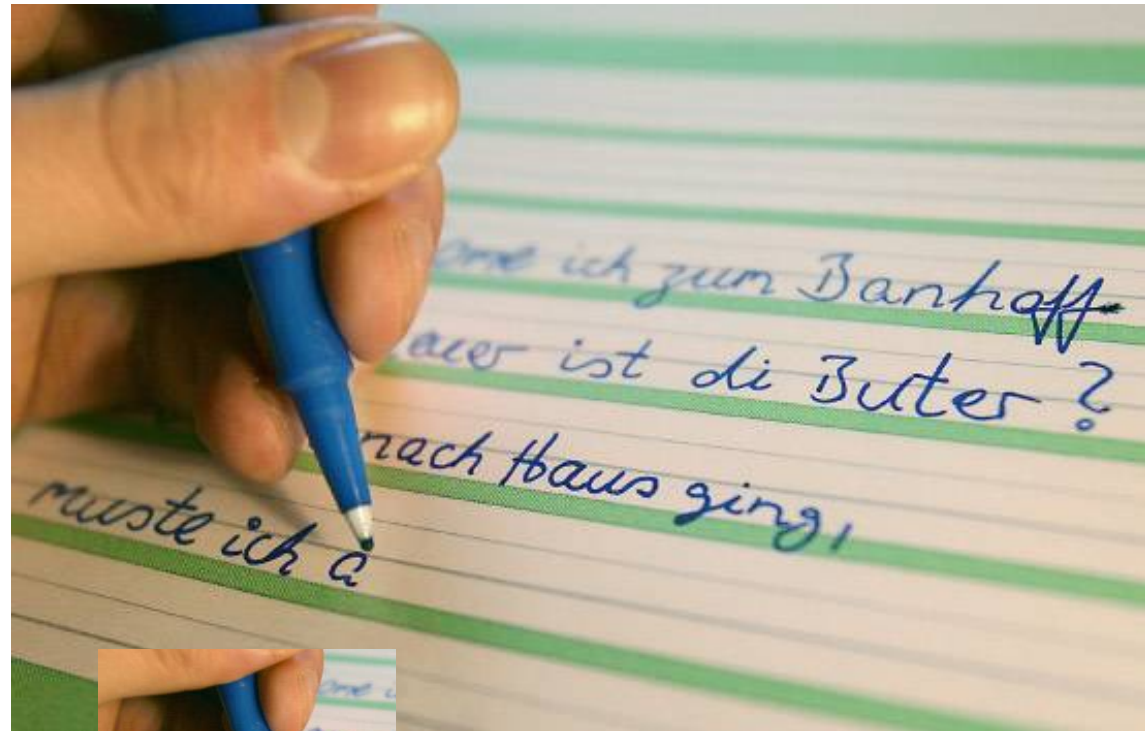 ome ich zum Banhoff
ist di Buter?
nach Haus ging,
muste ich a